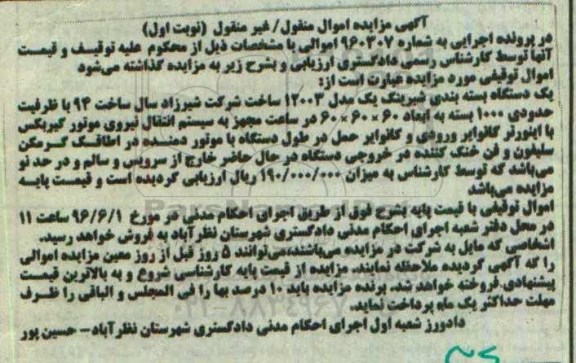 آگهی مزایده اموال منقول/ غیر منقول (نوبت اول)
در پرونده اجرایی به شماره ۹۶۰۳۰۷ اموالی با مشخصات ذیل از محکوم علیه توقیف و قیمت
آنها توسط کارشناس رسمی دادگستری ارزیابی و بشرح زیر به مزایده گذاشته می‌شود
اموال توقیفی مورد مزایده عبارت است از:
یک دستگاه بسته بندی شیرینگ پک مدل ۱۲۰۰۳ ساخت شرکت شیرزاد سال ساخت ۹۴ با ظرفیت
حدودی ۱۰۰۰ بسته به ابعاد ۶۰ × ۶۰ × ۶۰ در ساعت مجهز به سیستم انتقال نیروی موتور گیربکس
با اینورتر کانوایر ورودی و کانوایر حمل در طول دستگاه با موتور دمنده در اطاقک گرمکن
سلیفون و فن خنک کننده در خروجی دستگاه در حال حاضر خارج از سرویس و سالم و در حد نو
می‌باشد که توسط کارشناس به میزان ۱۹۰/۰۰۰/۰۰۰ ریال ارزیابی گردیده است و قیمت پایه
مزایده می‌باشد
اموال توقیفی با قیمت پایه بشرح فوق از طریق اجرای احکام مدنی در مورخ ۹۶/۶/۱ ساعت ۱۱
در محل دفتر شعبه اجرای احکام مدنی دادگستری شهرستان نظرآباد به فروش خواهد رسید.
اشخاصی که مایل به شرکت در مزایده می‌باشند،می‌توانند ۵ روز قبل از روز معین مزایده اموالی
را که آگهی گردیده ملاحظه نمایند. مزایده از قیمت پایه کارشناسی شروع و به بالاترین قیمت
پیشنهادی فروخته خواهد شد. برنده مزایده باید ۱۰ درصد بها را فی المجلس و الباقی را ظرف
مهلت حداکثر یک ماه پرداخت نماید.
دادورز شعبه اول اجرای احکام مدنی دادگستری شهرستان نظرآباد- حسین پور